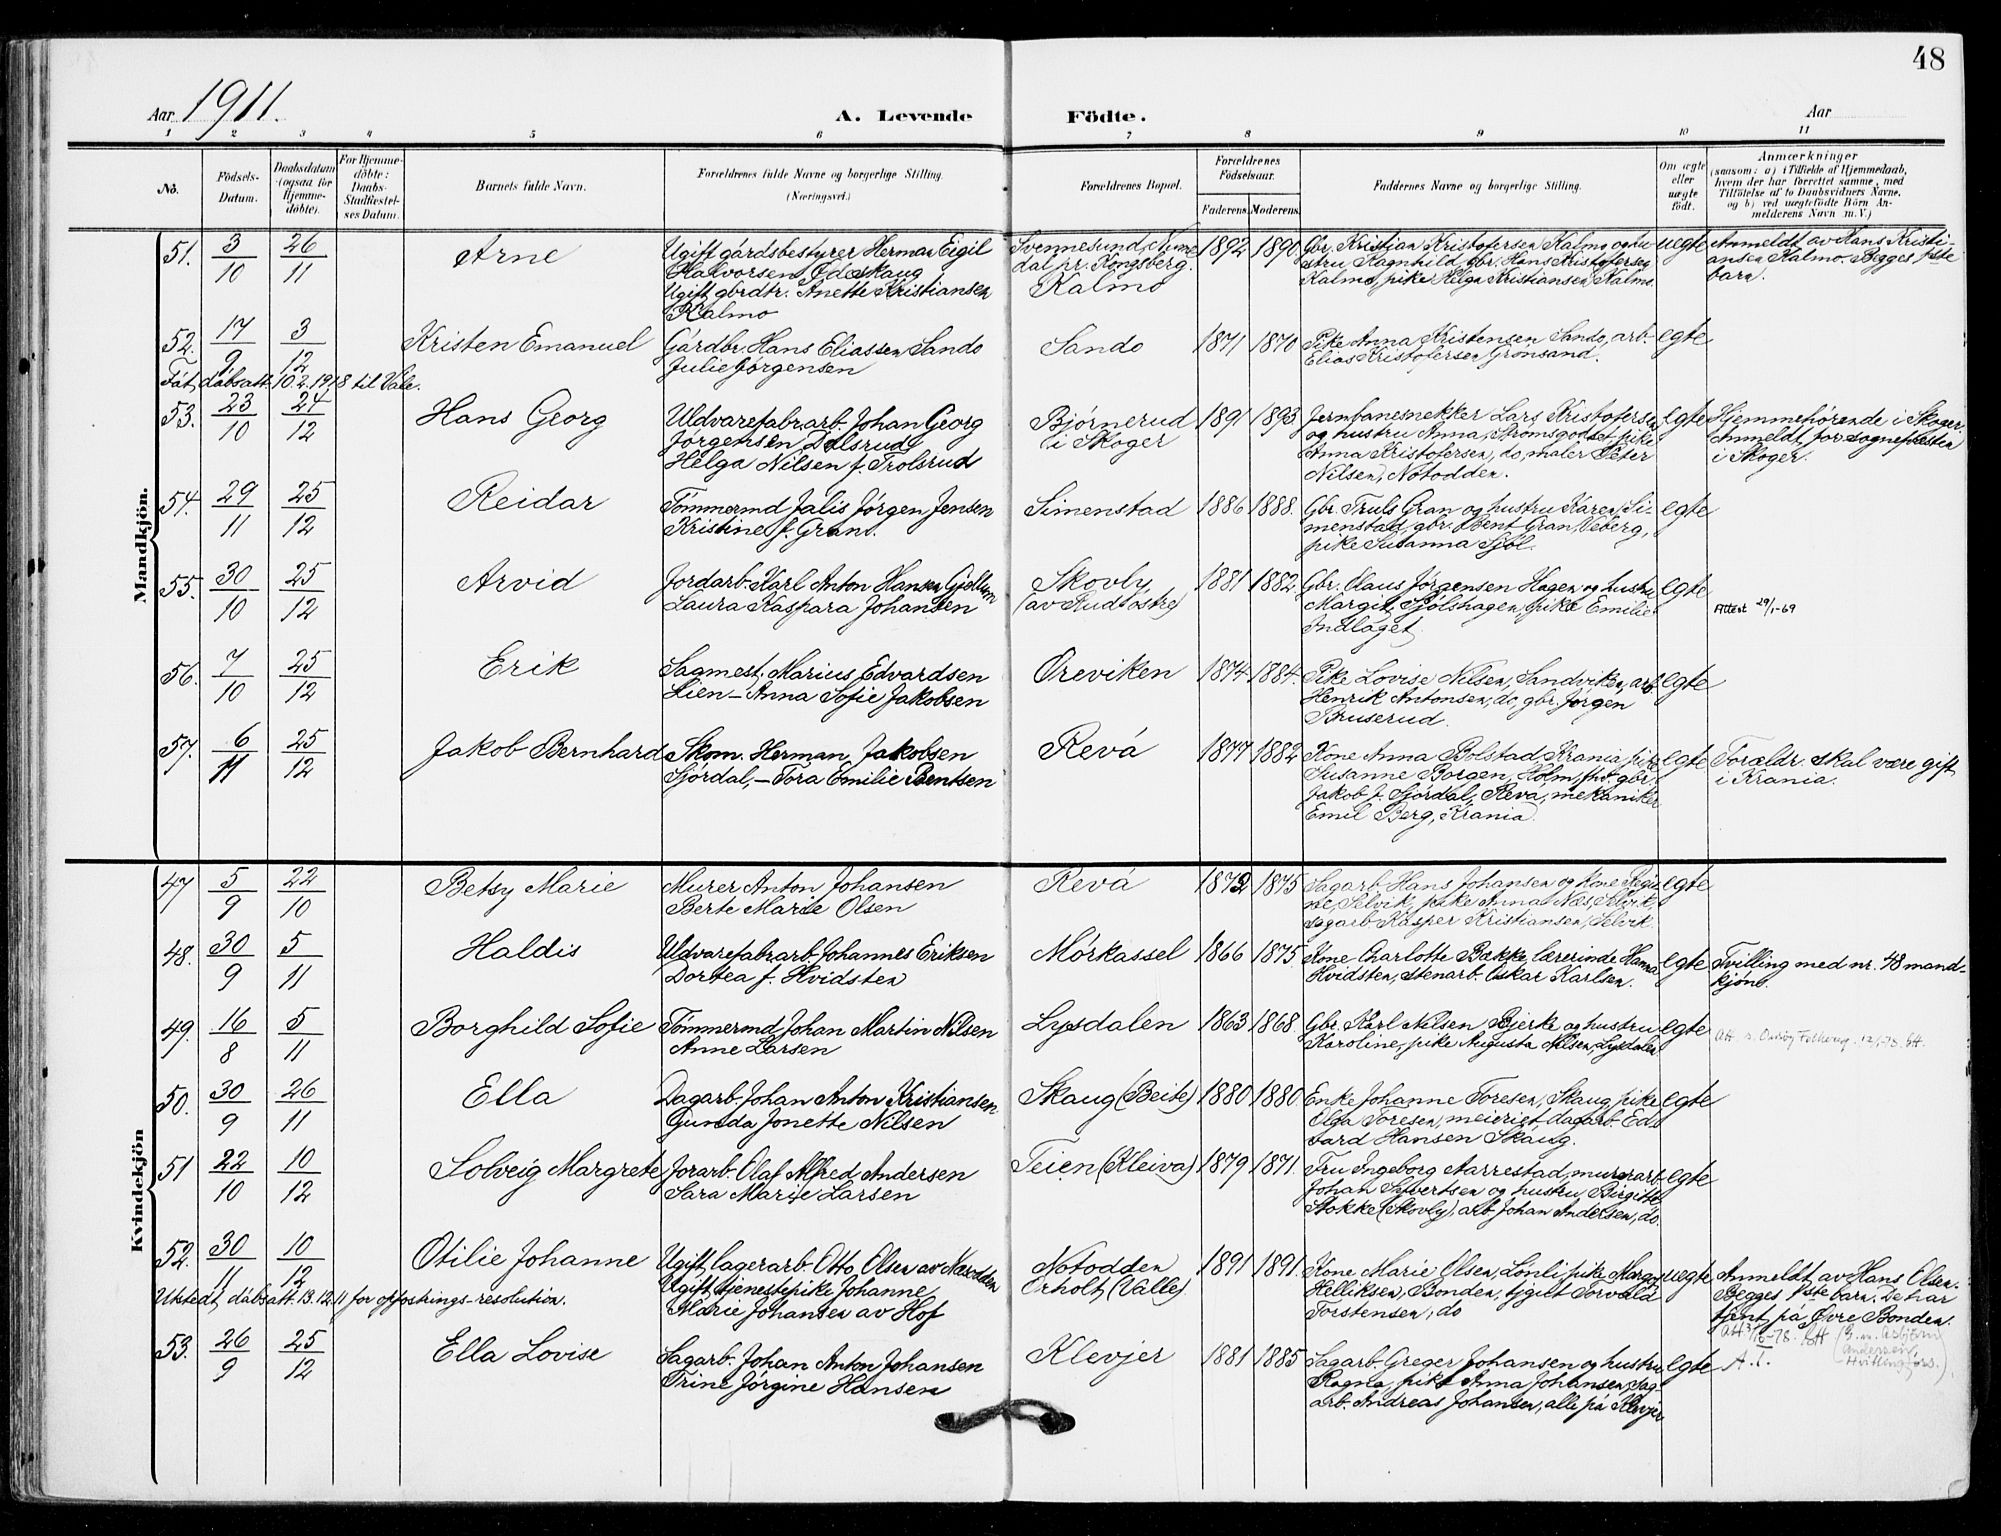 48
Aar 1911.
A. Levende Födte.
Aar
1 2 3 4 5 6 7 8 9 10 11
No.
Födsels-Datum.
Daabsdatum (ogsaa for Hjemmedöbte).
For Hjemmedöbte: Daabs-Stadfæstelses Datum.
Barnets fulde Navn.
Forældrenes fulde Navne og borgerlige Stilling. (Næringsvei.)
Forældrenes Bopæl.
Forældrenes Födselsaar.
Faderens. Moderens.
Faddernes Navne og borgerlige Stilling.
Om ægte eller uægte födt.
Anmærkninger
(saasom: a) i Tilfælde af Hjemmedaab,
hvem der har forrettet samme, med
Tilföielse af to Daabsvidners Navne,
og b) ved uægtefödte Börn Anmelderens Navn m. V.)
Mandkjön.
51. 3/10 26/11 Arne
Ugift gårdsbestyrer Herman Eigil
Halvorsen Ødeskaug
Ugift gbrdtr. Anette Kristiansen
Kalmo
Svennesund, Numedal pr. Kongsberg.
Kalmo
1892 1890
Gbr. Kristian Kristofersen Kalmo og hustru Ragnhild, gbr. Hans Kristofersen
Kalmo, pike Helga Kristiansen Kalmo.
uegte
Anmeldt av Hans Kristiansen Kalmo. Begges 1ste
barn.
52. 17/9 3/12 Kristen Emanuel
Gårdbr. Hans Eliassen Sando
Julie Jörgensen
Sando
1871 1870
Pike Anna Kristensen Sando, arb.
Elias Kristofersen Grønsand.
egte
Fåt dåbsatt. 10.2.1918 til Våle.
53. 23/10 24/12 Hans Georg
Uldvarefabr.arb. Johan Georg
Jörgensen Dalsrud
Helga Nilsen f. Trolsrud
Bjørnerud
i Skoger
1891 1893
Jernbanesnekker Lars Kristofersen
og hustru Anna, Strømsgodset, pike
Anna Kristofersen, do, maler Peter
Nilsen, Notodden.
egte
Hjemmehørende i Skoger.
Anmeldt for sognepresten
i Skoger.
54. 29/11 25/12 Reidar
Tömmermd Jalis Jörgen Jensen
Kristine f. Gran.
Simenstad
1886 1888.
Gbr. Truls Gran og hustru Karen, Simenstad, gbr. Bent Gran, Veberg,
pike Susanna Sjöl.
egte
55. 30/10 25/12 Arvid
Jordarb. Karl Anton Hansen Gjellum
Laura Kaspara Johansen
Skovly
(av Rud østre)
1881 1882
Gbr. Claus Jörgensen Hagen og hustru
Margit, Sjølshagen, pike Emilie
Indlaget.
egte
Attest 29/1-69
56. 7/10 25/12 Erik
Sagmest. Marius Edvardsen
Lien – Anna Sofie Jakobsen
Øreviken
1874 1884.
Pike Lovise Nilsen, Sandviken, arb.
Henrik Antonsen, do, gbr. Jörgen
Bruserud.
egte
57. 6/11 25/12 Jakob Bernhard
Skom. Herman Jakobsen
Sjördal, – Tora Emilie Bentsen
Revå
1877 1882
Kone Anna Bolstad, Krania, pike
Susanne Borgen, Holm, fhv. gbr.
Jakob J. Sjördal, Revå, mekaniker
Emil Berg, Krania.
egte
Forældr. skal være gift
i Krania.
Kvindekjön
47 5/9 22/10 Betsy Marie
Murer Anton Johansen
Berte Marie Olsen
Revå
1872 1875
Sagarb. Hans Johansen og kone Regine, Selvik, pike Anna Næs, Selvik,
sagarb. Kasper Kristiansen, Selvik.
egte
48. 30/9 5/11 Haldis
Uldvarefabr.arb. Johannes Eriksen
Dortea f. Hvidsten
Mørkassel
1866 1875.
Kone Charlotte Bække, lærerinde Hanna
Hvidsten, stenarb. Oskar Karlsen.
egte
Tvilling med nr. 48 mandkjøn.
49. 16/8 5/11 Borghild Sofie
Tömmermd Johan Martin Nilsen
Anne Larsen
Lysdalen
1863 1868.
Gbr. Karl Nilsen Bjerke og hustru
Karoline, pike Augusta Nilsen, Lysdalen
egte
50. 30/9 26/11 Ella
Dagarb. Johan Anton Kristiansen
Gunda Jonette Nilsen
Skaug (Beite)
1880 1880.
Enke Johanne Toresen, Skaug, pike
Olga Toresen, meieriet, dagarb. Edvard Hansen Skaug.
egte
51 22/10 10/12 Solveig Margrete
Jorarb. Olaf Alfred Andersen
Sara Marie Larsen
Teien (Kleiva)
1879 1871.
Fru Ingeborg Aarrestad, murerarb.
Johan Syvertsen og hustru Birgitte
Stokke (Skovly), arb. Johan Andersen, do.
egte
52. 30/11 10/12 Otilie Johanne
Ugift lagerarb. Otto Olsen av Næsodden
Ugift tjenestepike Johanne
Marie Johansen av Hof
Notodden
Erholt (Valle)
1891 1891.
Kone Marie Olsen, Lønli, pike Margy
Helliksen, Bonden, tjgut Torvald
Torstensen, do
uegte
Anmeldt av Hans Olsen.
Begges 1ste barn. De har
tjent på Øvre Bonden.
Utstedt dåbsatt. 13.12.11 for opfostrings-resolution.
53. 26/9 25/12 Ella Lovise
Sagarb. Johan Anton Johansen
Trine Jörgine Hansen
Klevjer
1881 1885
Sagarb. Greger Johansen og hustru
Ragna, pike Anna Johansen, sagarb. Andreas Johansen, alle på Klevjer
egte
A. I.